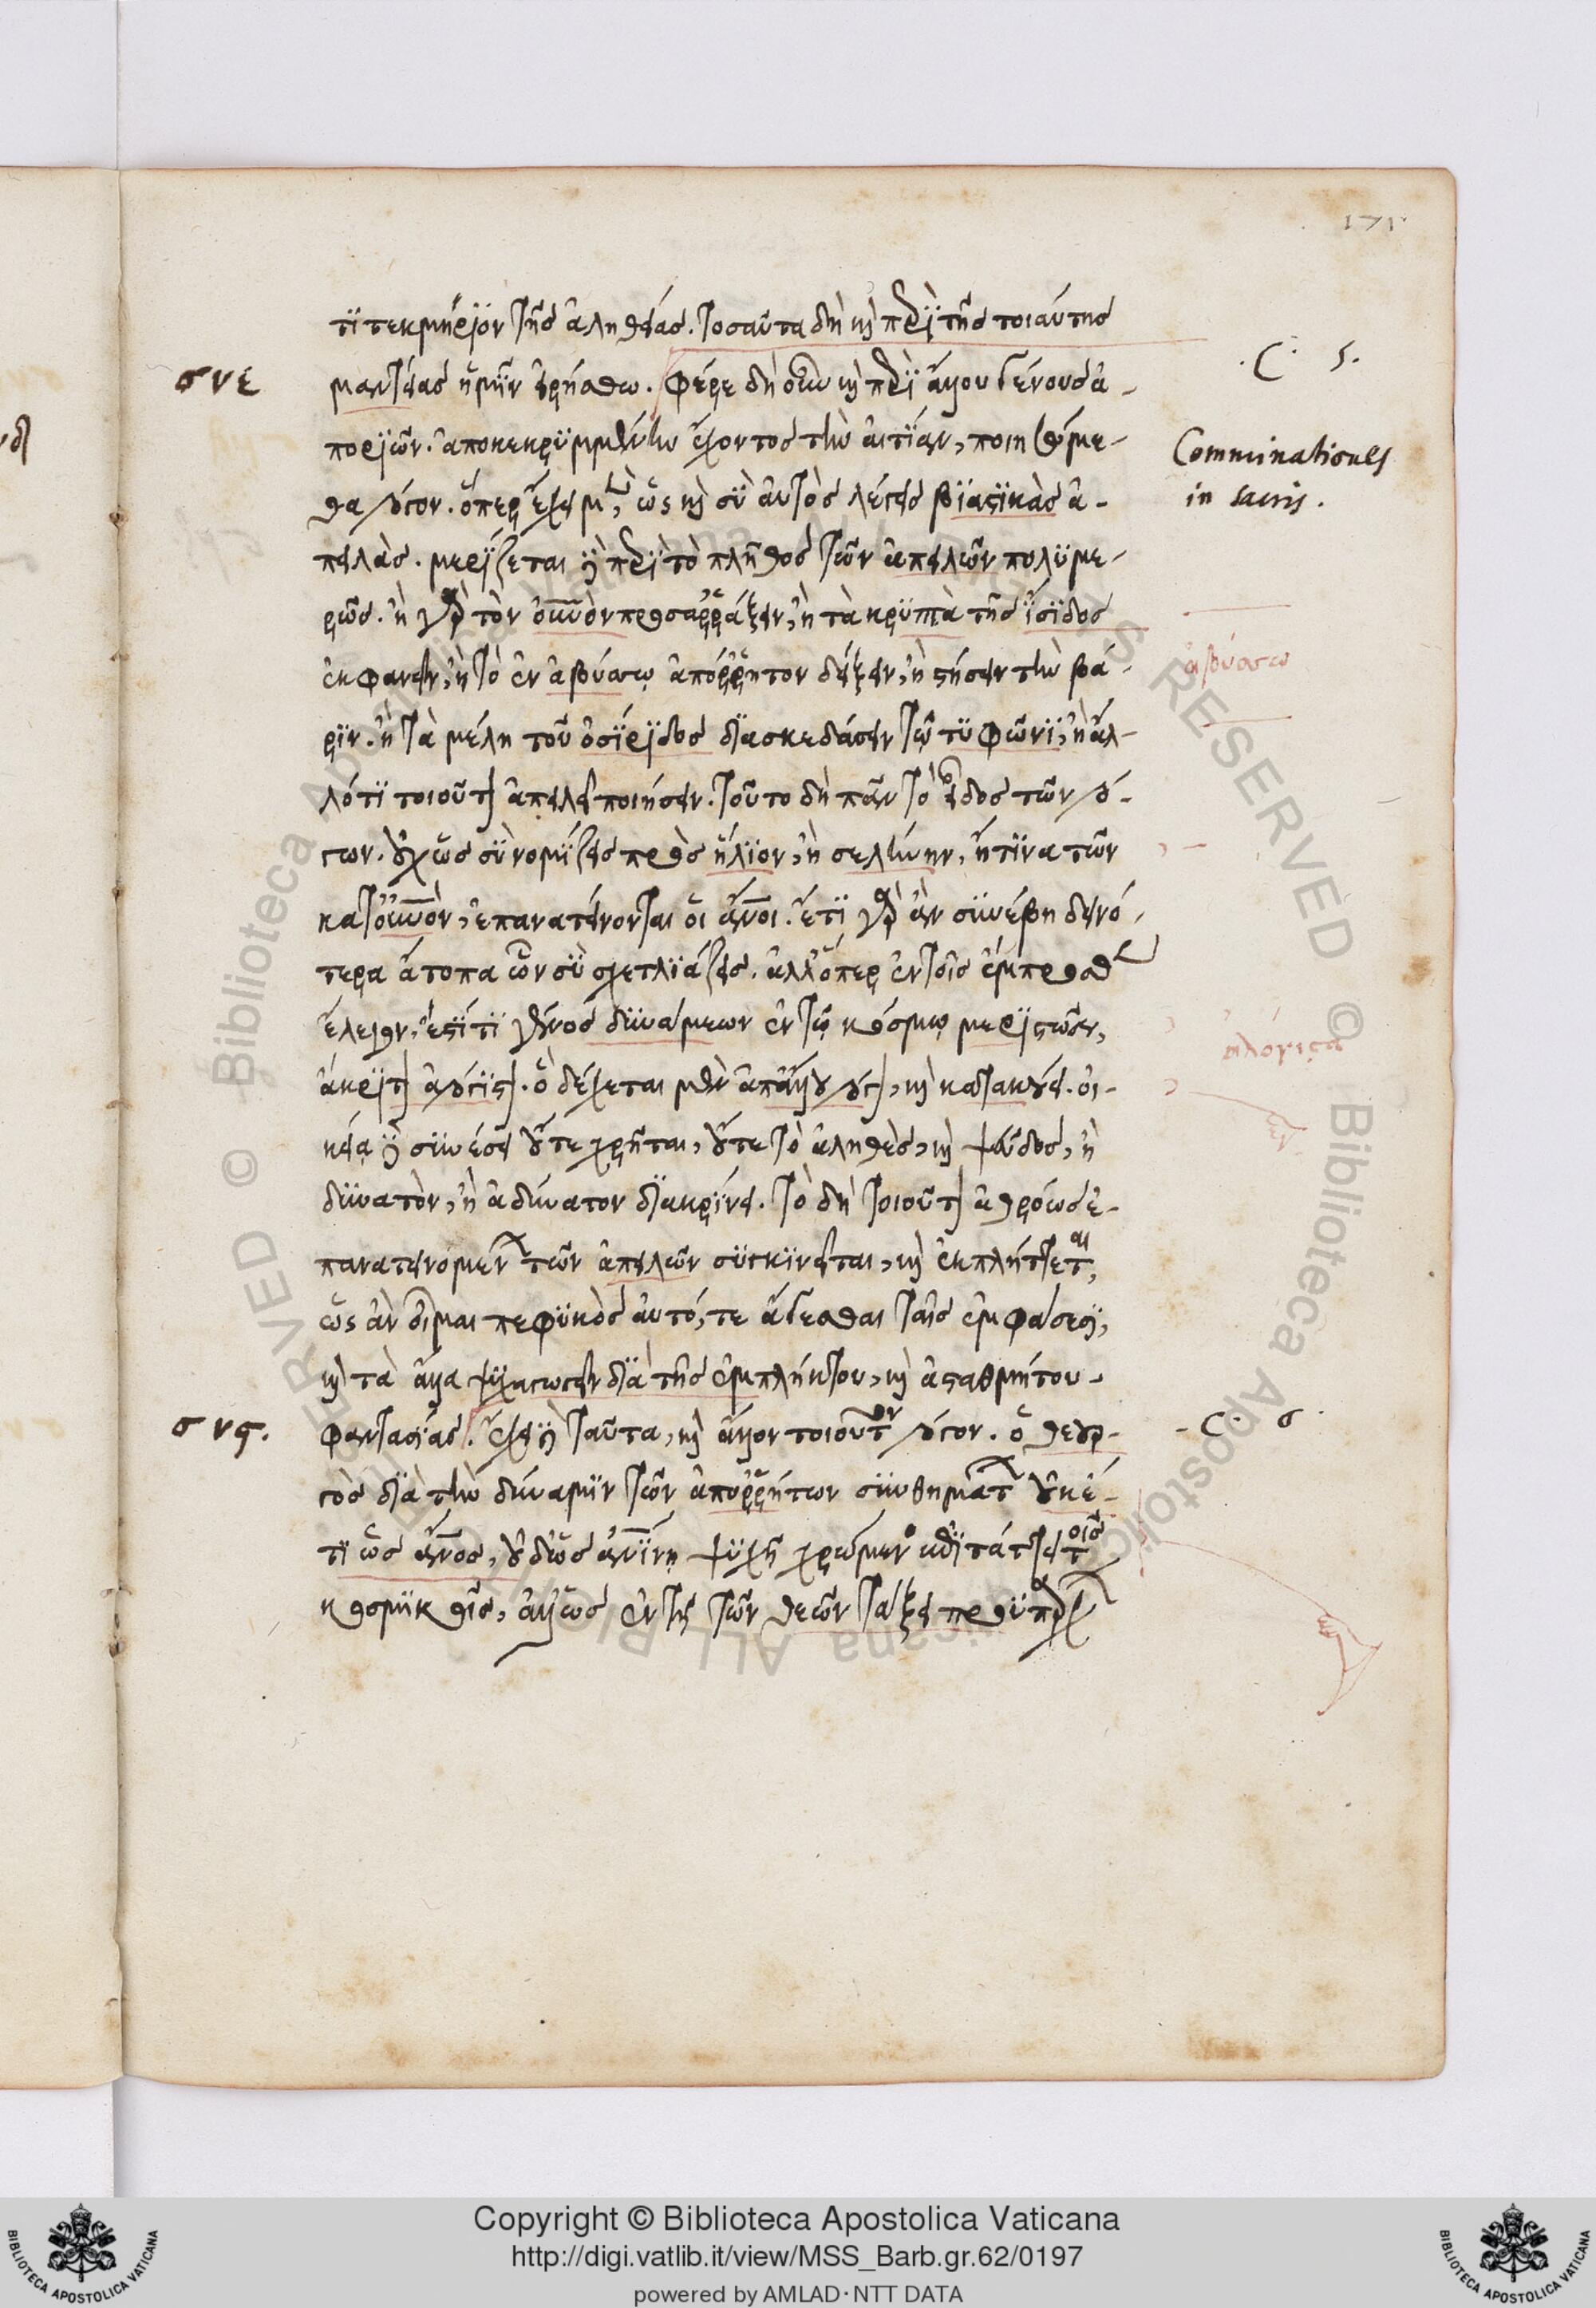 171
τὶ τεκμήριον τῆς ἀληθείας. τοσαῦτα δὴ καὶ περὶ τῆς τοιαύτης
C. 5.
σνε
μαντείας ἡμῖν εἰρήσθω. Φέρε δὴ οὖν καὶ περὶ ἄλλου γένους ἀ-
ποριῶν. ἀποκεκρυμμένην ἔχοντος τὴν αἰτίαν, ποιησώμε-
Comminationes
θα λόγον. ὅπερ ἔχει μὲν, ὡς καὶ σὺ αὐτὸς λέγεις βιαστικὰς ἀ-
in sacris.
πειλὰς. μερίζεται δὲ περὶ τὸ πλῆθος τῶν ἀπειλῶν πολυμε-
ρῶς. ἢ γὰρ τὸν οὐνὸν προσαρράξειν, ἢ τὰ κρυπτὰ τῆς ἴσιδος
ἐκφανεῖν, ἢ τὸ ἐν ἀβύσσῳ ἀπόρρητον δείξειν, ἢ στήσειν τὴν βά-
ἀβύσσω
ριν. ἢ τὰ μέλη τοῦ ὀσίριδος διασκεδάσειν τῷ τυφῶνι, ἢ ἄλ-
λό τι τοιοῦτον ἀπειλεῖ ποιήσειν. τοῦτο δὴ πᾶν τὸ εἶδος τῶν λό-
γων. οὐχ ὡς σὺ νομίζεις πρὸς ἥλιον, ἢ σελήνην, ἤ τινα τῶν
κατ οὐνὸν, ἐπανατείνονται οἱ ἄνοι. ἔτι γὰρ ἂν συνέβη δεινό-
τερα ἄτοπα ὧν σὺ σχετλιάζεις. ἀλλ' ὅπερ ἐν τοῖς ἔμπροσθεν
ἔλεγον, ἔστί τι γένος δυνάμεων ἐν τῷ κόσμῳ μεριστῶν,
ἄκριτον ἀλόγιστον. ὃ δέχεται μὲν ἀπ' ἄλλου λόγον, καὶ κατακούει. οἰ-
ἀλόγιστα
κείᾳ δὲ συνέσει οὔτε χρῆται, οὔτε τὸ ἀληθὲς, καὶ ψεῦδος, ἢ
δυνατὸν, ἢ ἀδύνατον διακρίνει. τὸ δὴ τοιοῦτον ἀθρόως ἐ-
πανατεινομένων τῶν ἀπειλῶν συγκινεῖται, καὶ ἐκπλήττεται,
ὡς ἂν οἶμαι πεφυκὸς αὐτό, τε ἄγεσθαι ταῖς ἐμφάσεσι,
καὶ τὰ ἄλλα ψυχαγωγεῖν διὰ τῆς ἐμπλήκτου, καὶ ἀσταθμήτου
σνς.
φαντασίας. ἔχει δὲ ταῦτα, καὶ ἄλλον τοιοῦτον λόγον. ὁ θεουρ-
C. 6.
γὸς διὰ τὴν δύναμιν τῶν ἀπορρήτων συνθημάτων οὐκέ-
τι ὡς ἄνος, οὐδ' ὡς ἀνίνῃ ψυχῇ χρώμενος ἐπιτάττει τοῖς
κοσμικοῖς, ἀλλ' ὡς ἐν τῇ τῶν θεῶν τάξει προϋπάρχων
Copyright © Biblioteca Apostolica Vaticana
http://digi.vatlib.it/view/MSS_Barb.gr.62/0197
powered by AMLAD · NTT DATA